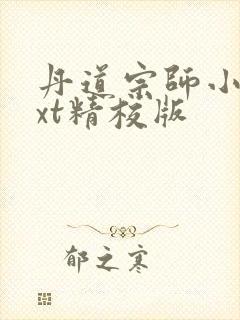 丹道宗師小
xt精校版
郁之寒